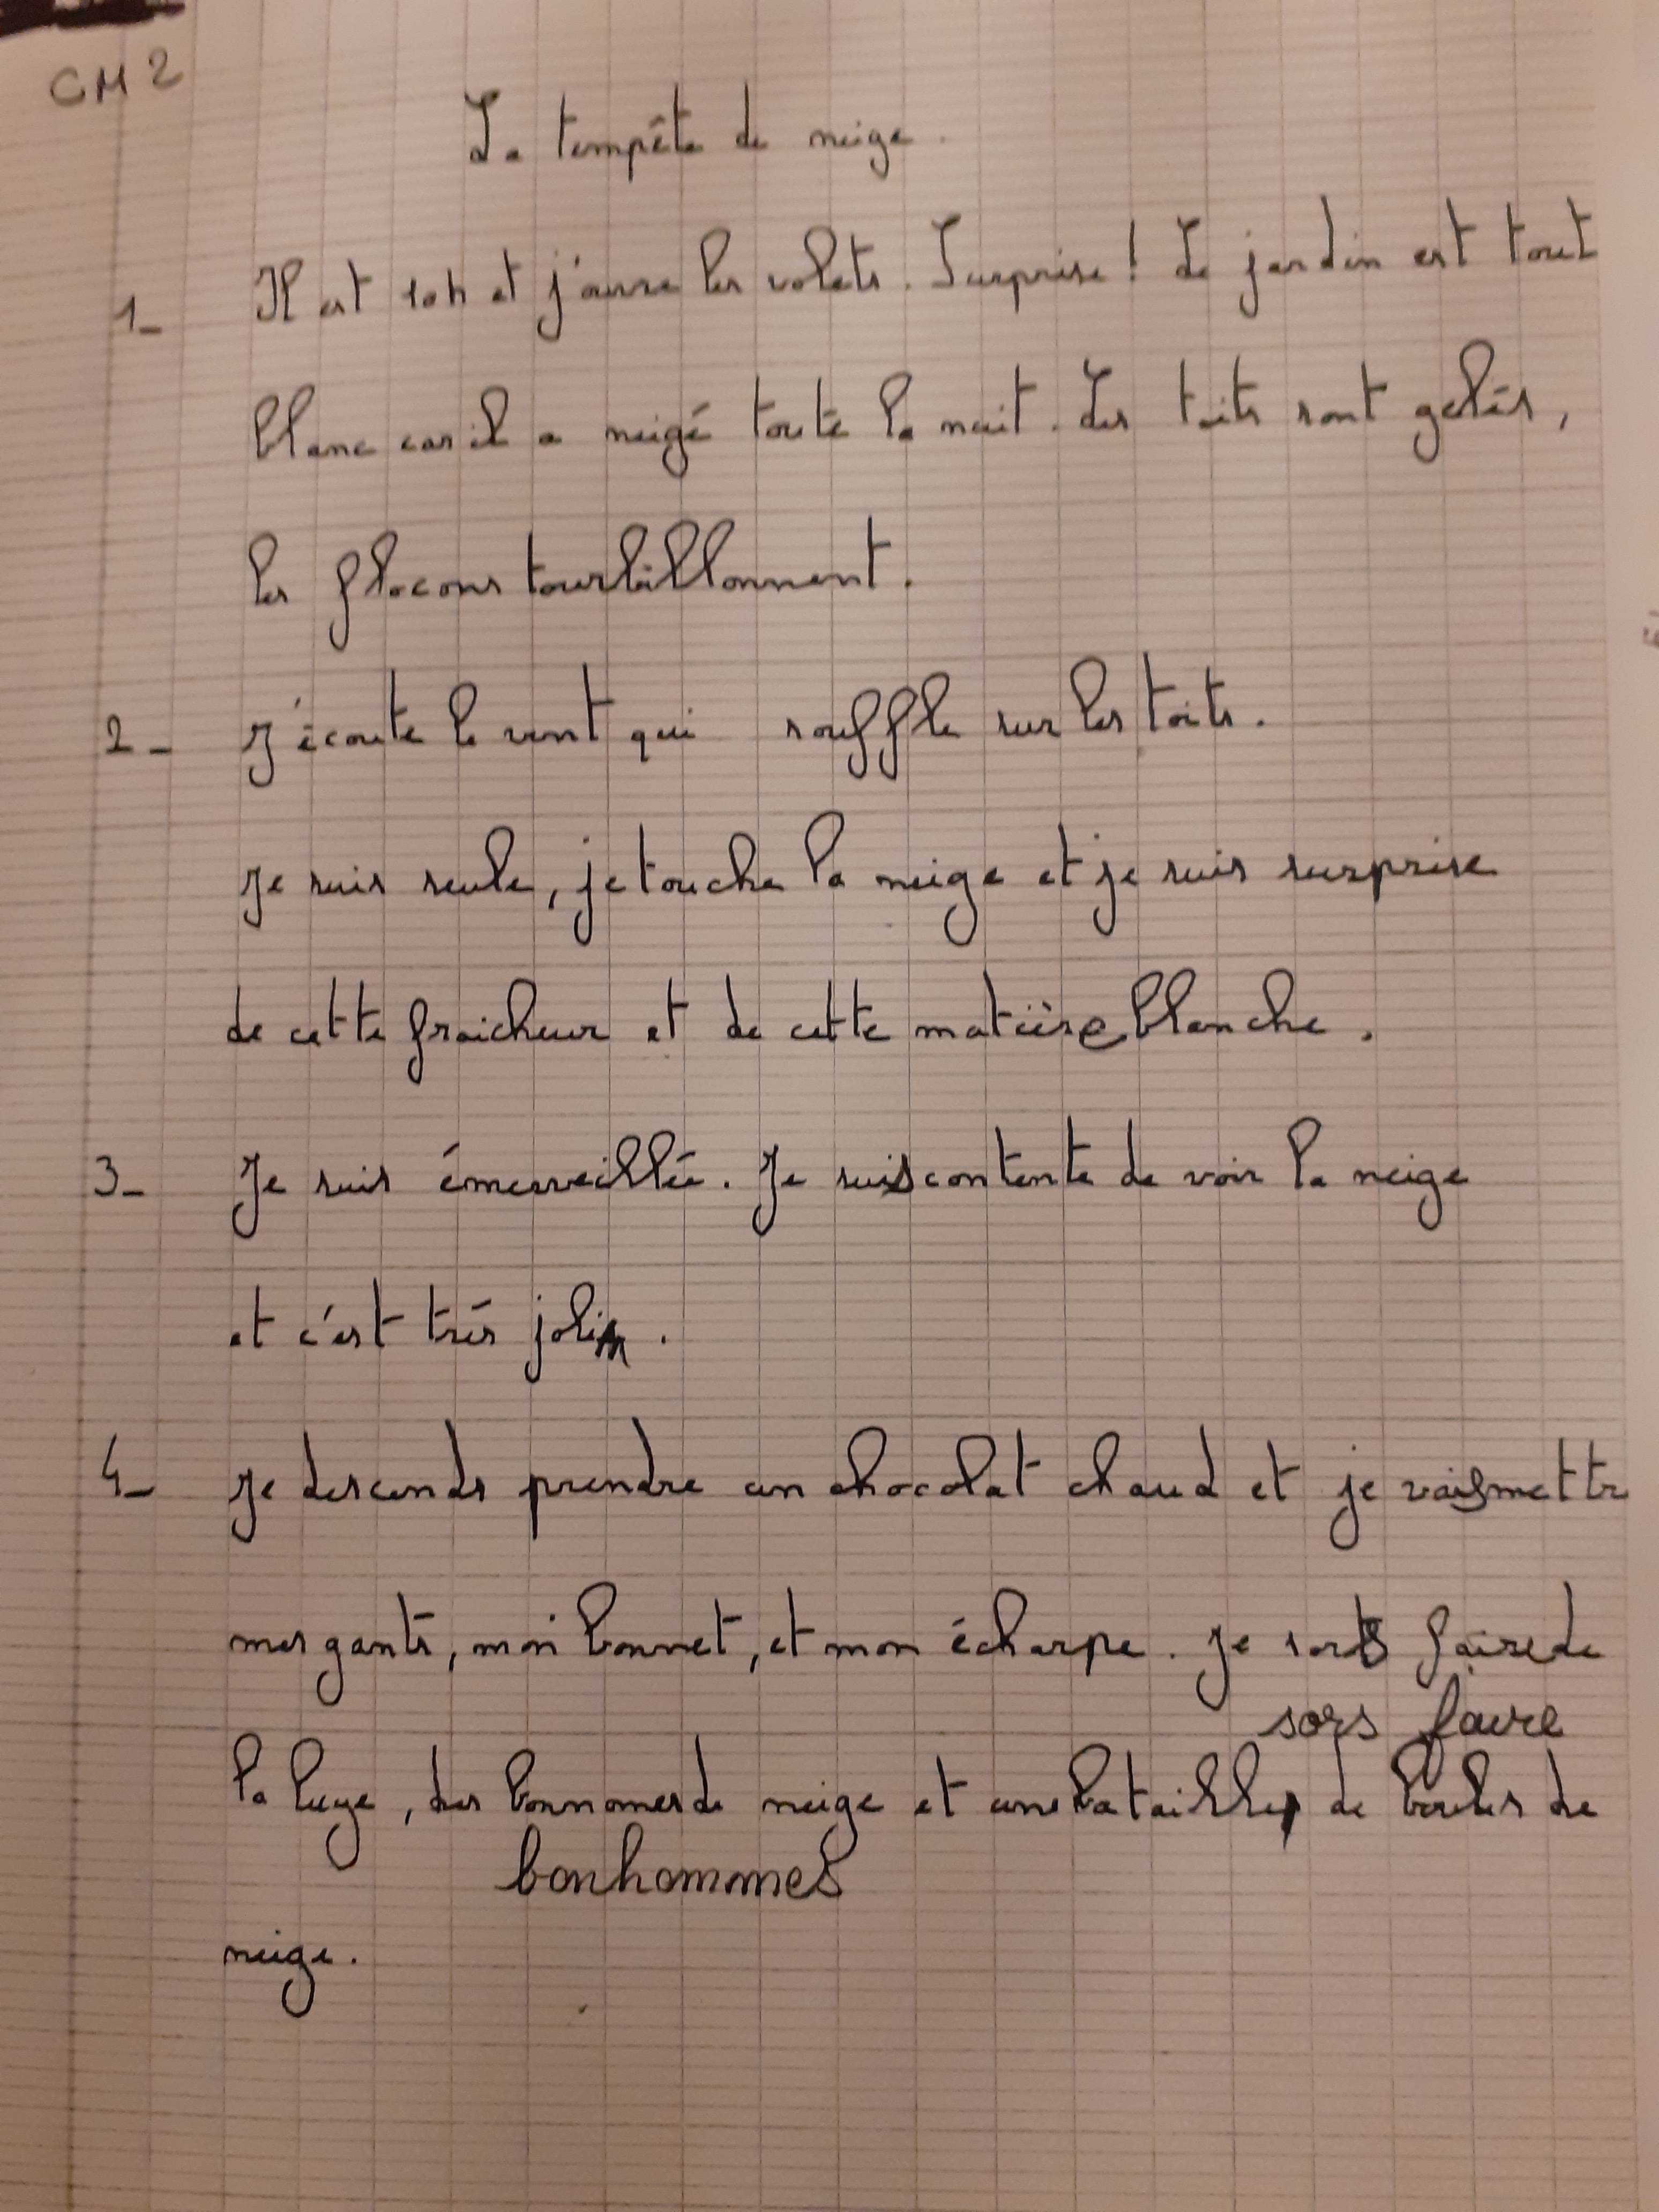 CM2
La tempête de neige.
1- Il est 10h et j'ouvre les volets. Surprise ! Le jardin est tout
blanc car il a neigé toute la nuit. Les toits sont gelés,
les flocons tourbillonnent.
2- J'écoute le vent qui souffle sur les toits.
Je suis seule, je touche la neige et je suis surprise
de cette fraicheur et de cette matière blanche.
3- Je suis émerveillée. Je suis contente de voir la neige
et c'est très joli.
4- Je descends prendre un chocolat chaud et je vais mettre
mes gants, mon bonnet, et mon écharpe. Je sors faire de
sors faire
la luge, des bonnomes de neige et une bataille de boules de
bonhommes
neige.